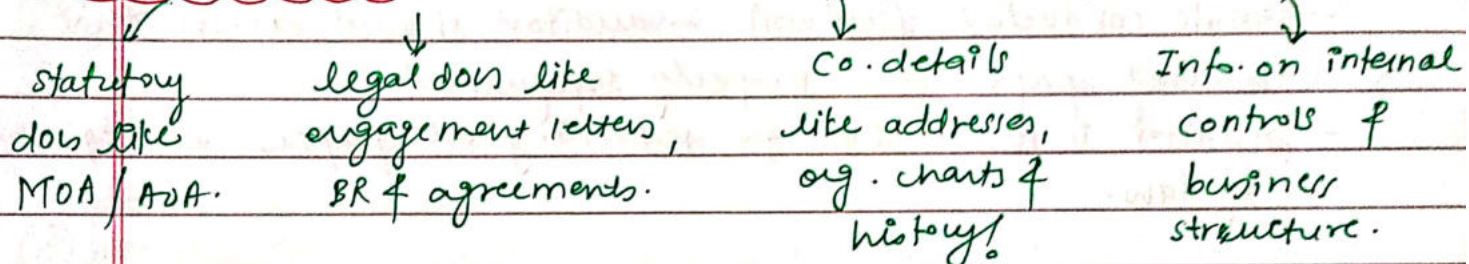 statutory
docs like
MOA / AOA.
legal docs like
engagement letters,
BR & agreements.
Co. details
like addresses,
org. charts &
history!
Info. on internal
controls &
business
structure.